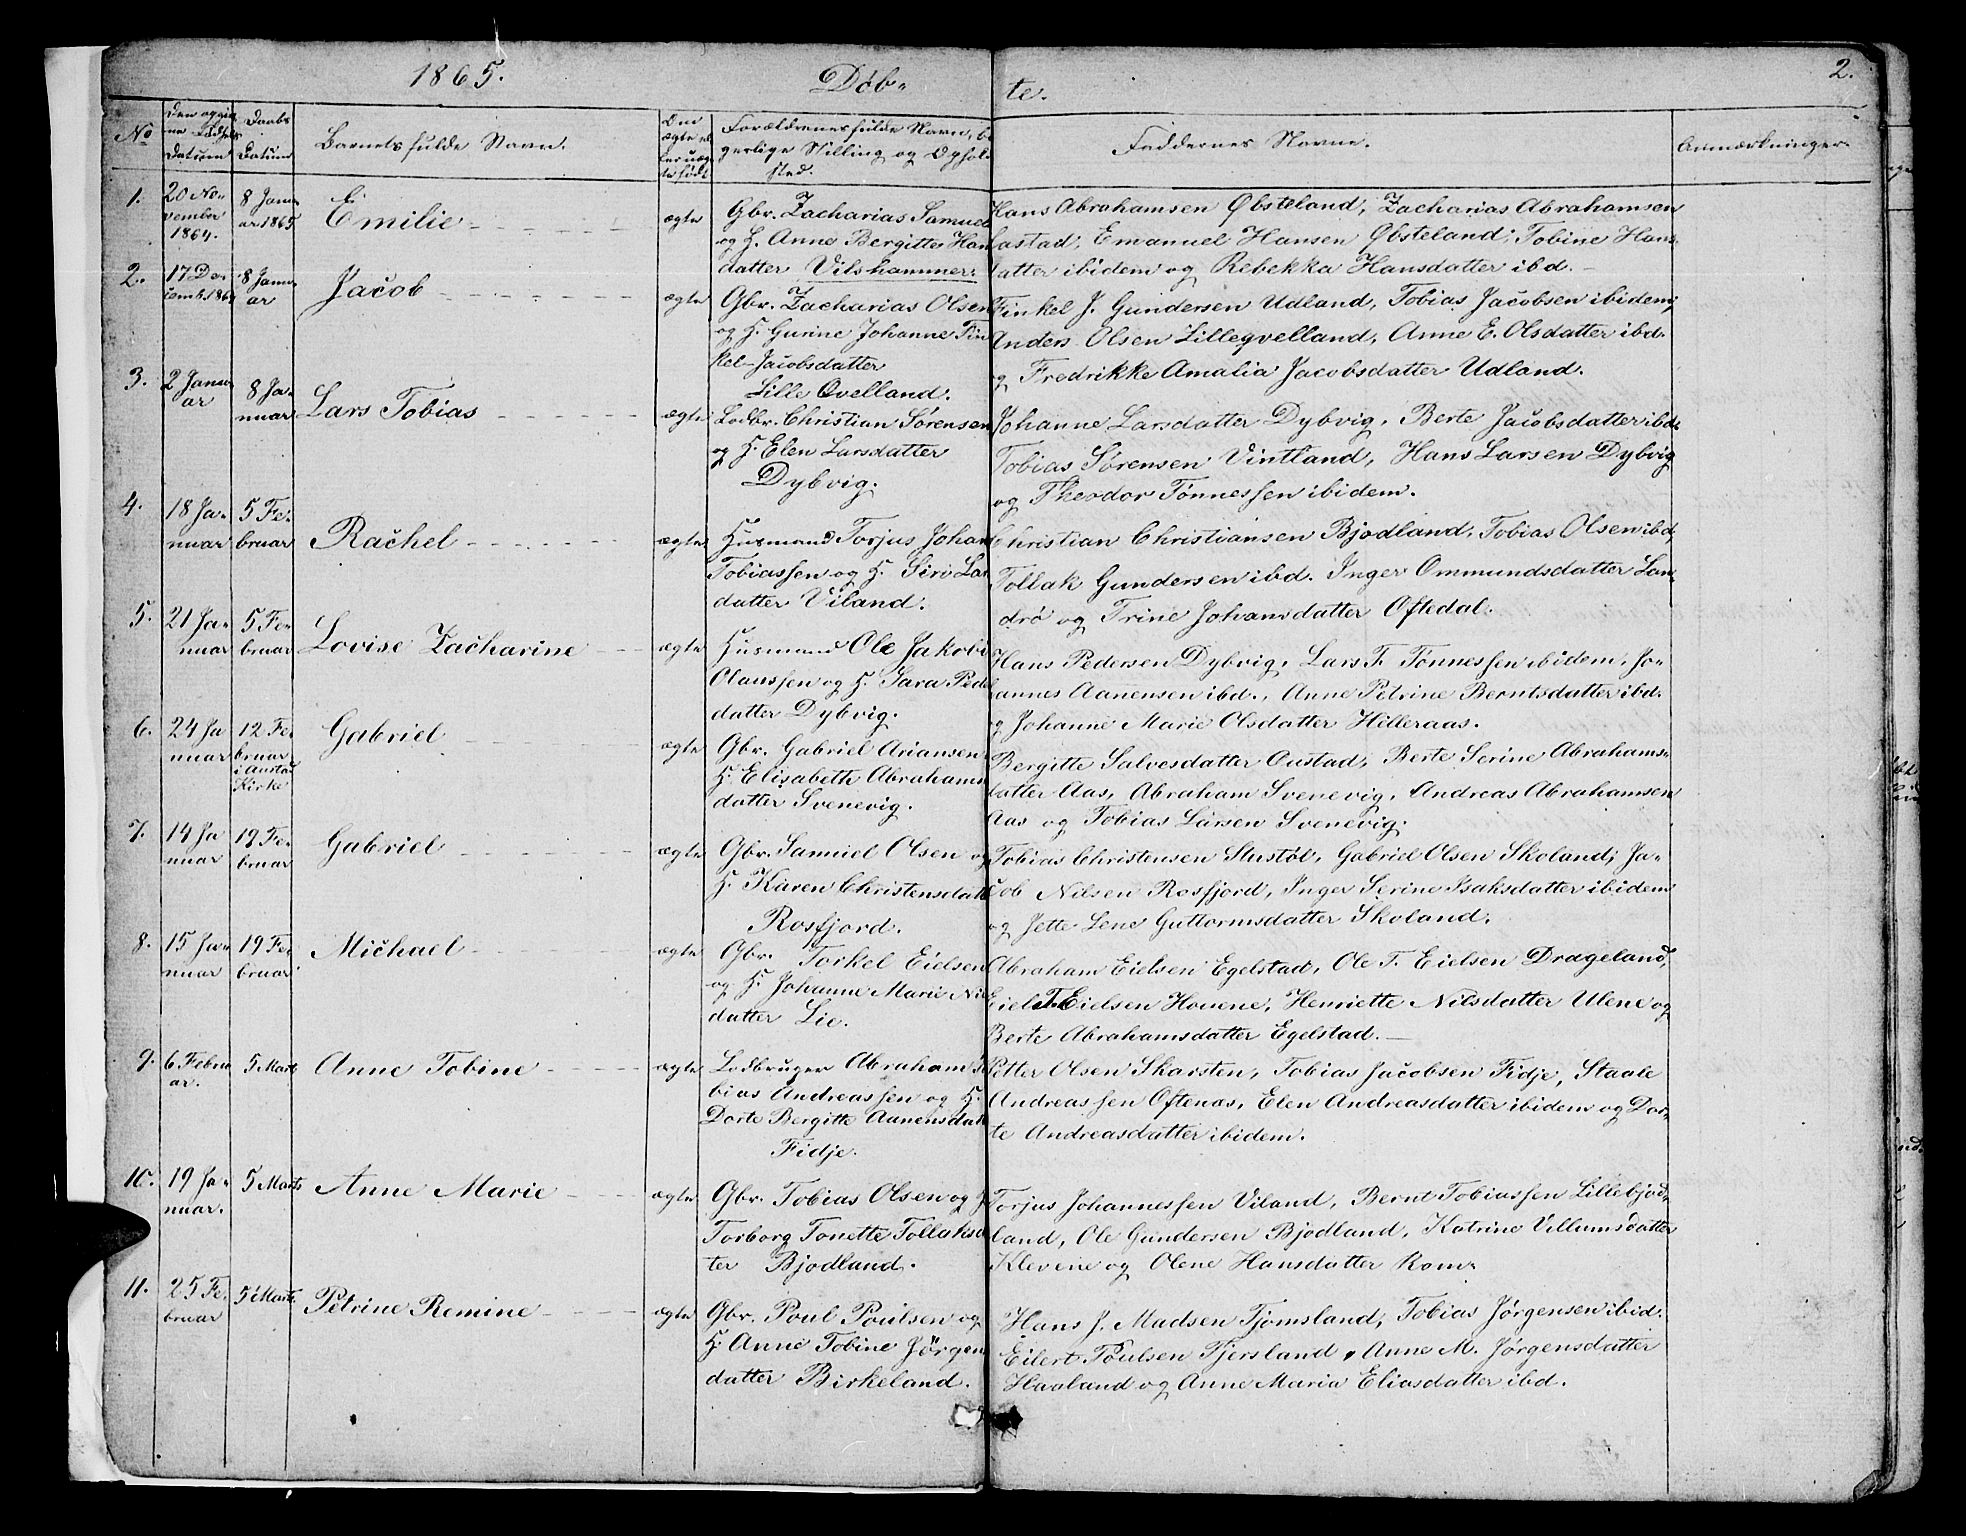 1865. Døb- te. 2.
No
Den opgiv-
ne Fødsels
Datum
Daabs
Datum
Barnets fulde Navn.
Om
ægte el
ler uæg
te født
Forældrenes fulde Navn, b
gerlige Stilling og Ophol
sted.
Faddernes Navne.
Anmærkninger.
1.
20 No-
vember
1864.
8 Janu
ar 1865
Emilie
ægte
Gbr. Zacharias Samuel
og H. Anne Bergitte Han
datter Vilshammer.
Hans Abrahamsen Øbsteland, Zacharias Abrahamsen
Lastad, Emanuel Hansen Øbsteland, Tobine Hans-
datter ibidem og Rebekka Hansdatter ibd.
2.
17 De-
cemb. 1864
8 Janu
ar
Jacob
ægte
Gbr. Zacharias Olsen
og H. Gurine Johanne Fin
kel-Jacobsdatter
Lille Qvelland.
Finkel J. Gundersen Udland, Tobias Jacobsen ibidem,
Anders Olsen Lilleqvelland, Anne E. Olsdatter ibd.
og Fredrikke Amalia Jacobsdatter Udland.
3.
2 Janu
ar
8 Ja-
nuar
Lars Tobias
ægte
Lodbr. Christian Sørensen
og H. Elen Larsdatter
Dybvig.
Johanne Larsdatter Dybvig, Berte Jacobsdatter ibd.
Tobias Sørensen Vintland, Hans Larsen Dybvig
og Theodor Tønnessen ibidem.
4.
18 Ja-
nuar
5 Fe-
bruar
Rachel
ægte
Husmand Torjus Johan
Tobiassen og H. Siri La
datter Viland.
Christian Christiansen Bjodland, Tobias Olsen ibd,
Tollak Gundersen ibd. Inger Ommundsdatter Lan-
drø og Trine Johansdatter Oftedal.
5.
21 Ja-
nuar
5 Fe-
bruar
Lovise Zacharine
ægte
Husmand Ole Jakobi
Olaussen og H. Sara Ped
datter Dybvig.
Hans Pedersen Dybvig, Lars T. Tønnessen ibidem, Jo-
hannes Aanensen ibd., Anne Petrine Berntsdatter ibd.
og Johanne Marie Olsdatter Hilleraas.
6.
24 Ja
nuar
12 Fe-
bruar
i Austad
Kirke
Gabriel
ægte
Gbr. Gabriel Ariansen
H. Elisabeth Abrahams
datter Svenevig.
Bergitte Salvesdatter Oustad, Berte Serine Abrahams-
datter Aas, Abraham Svenevig, Andreas Abrahamsen
Aas og Tobias Larsen Svenevig.
7.
14 Ja
nuar
19 Fe-
bruar
Gabriel
ægte
Gbr. Samuel Olsen og
H. Karen Christensdatt
Rosfjord.
Tobias Christensen Stustøl, Gabriel Olsen Skoland, Ja-
cob Nilsen Rosfjord, Inger Serine Isaksdatter ibidem
og Jette Lene Guttormsdatter Skoland.
8.
15 Ja-
nuar
19 Fe-
bruar
Michael
ægte
Gbr. Torkel Eielsen
og H. Johanne Marie Nil
datter Lie.
Abraham Eielsen Egelstad, Ole T. Eielsen Drageland,
Eiel T. Eielsen Houene, Henriette Nilsdatter Ulene og
Berte Abrahamsdatter Egelstad.
9.
6 Febru
ar.
5 Marts
Anne Tobine
ægte
Lodbruger Abraham To
bias Andreassen og H.
Dorte Bergitte Aanensdatt
Fidje.
Petter Olsen Skarsten, Tobias Jacobsen Fidje, Staale
Andreassen Oftenas, Elen Andreasdatter ibidem og Dor-
te Andreasdatter ibidem.
10.
19 Ja-
nuar.
5 Marts
Anne Marie
ægte
Gbr. Tobias Olsen og H
Torborg Tonette Tollaksd
ter Bjodland.
Torjus Johannessen Viland, Bernt Tobiassen Lillebjod-
land, Ole Gundersen Bjodland, Katrine Villumsdatter
Klevene og Olene Hansdatter Rom.
11.
25 Fe-
bruar
5 Marts
Petrine Remine
ægte
Gbr. Poul Poulsen og
H. Anne Tobine Jörgen
datter Birkeland.
Hans J. Madsen Tjomsland, Tobias Jørgensen ibid.
Eilert Poulsen Tjersland, Anne M. Jørgensdatter
Haaland og Anne Maria Eliasdatter ibd.